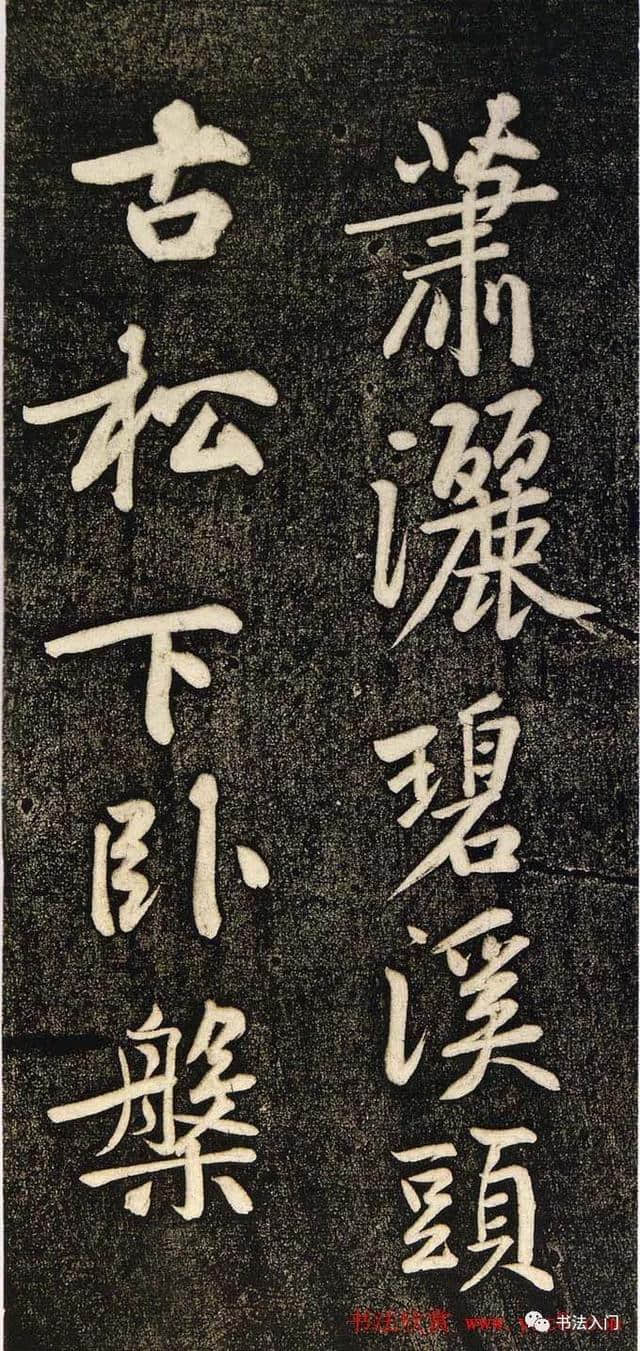 蕭灑碧溪頭
古松下臥槃
书法欣赏 www.
书法入门